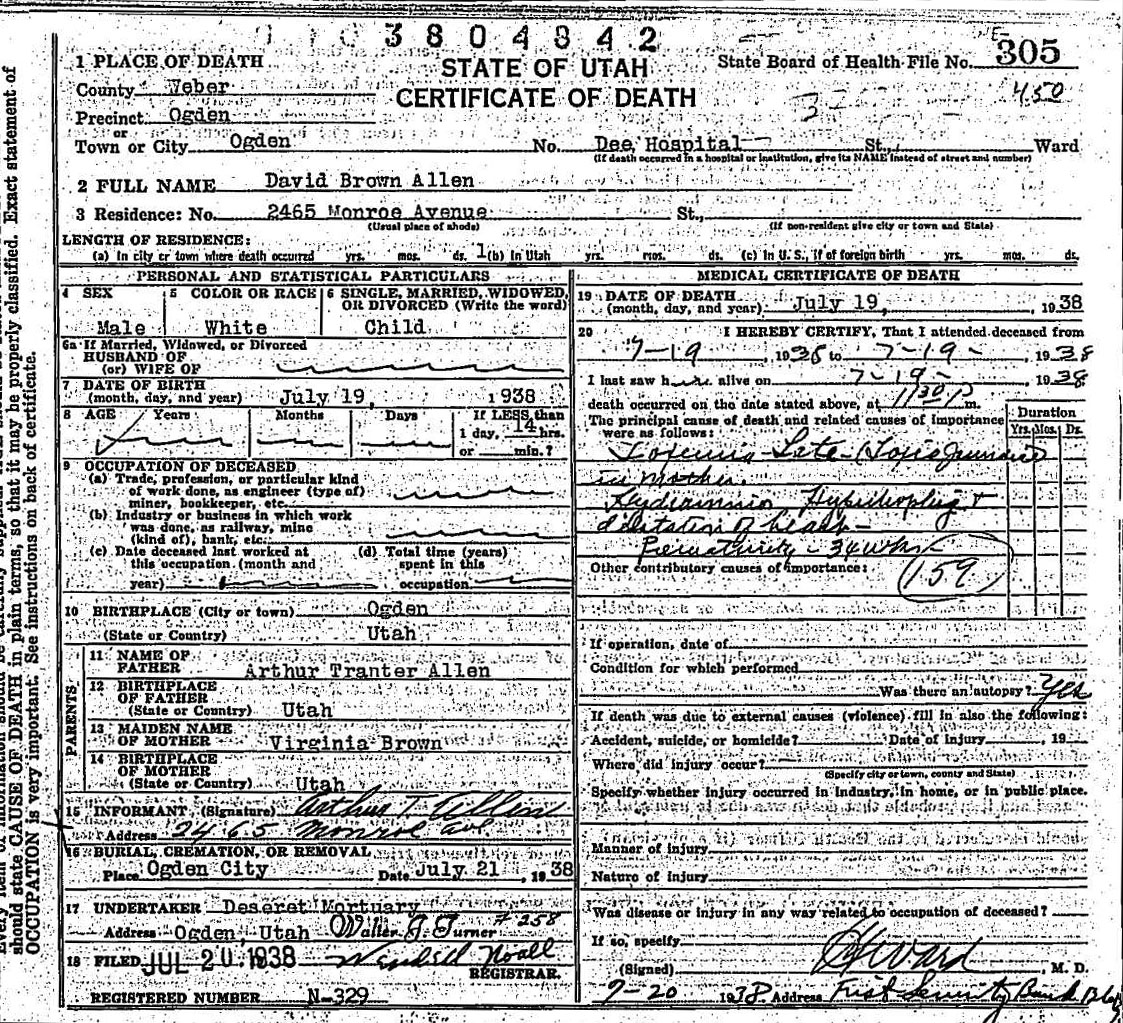 3804842
305
STATE OF UTAH
State Board of Health File No.
CERTIFICATE OF DEATH
450
1 PLACE OF DEATH
County Weber
Precinct Ogden
or
Town or City Ogden No. Dee Hospital St., Ward
(If death occurred in a hospital or institution, give its NAME instead of street and number)
2 FULL NAME David Brown Allen
3 Residence: No. 2465 Monroe Avenue St.,
(Usual place of abode) (If non-resident give city or town and State)
LENGTH OF RESIDENCE:
(a) In city or town where death occurred yrs. mos. ds. 1 (b) In Utah yrs. mos. ds. (c) In U. S., if of foreign birth yrs. mos. ds.
PERSONAL AND STATISTICAL PARTICULARS
4 SEX 5 COLOR OR RACE 6 SINGLE, MARRIED, WIDOWED,
OR DIVORCED (Write the word)
Male White Child
6a If Married, Widowed, or Divorced
HUSBAND OF
(or) WIFE OF
7 DATE OF BIRTH
(month, day, and year) July 19, 1938
8 AGE Years Months Days If LESS than
1 day, 14 hrs.
or min.?
9 OCCUPATION OF DECEASED
(a) Trade, profession, or particular kind
of work done, as engineer (type of)
miner, bookkeeper, etc.
(b) Industry or business in which work
was done, as railway, mine
(kind of), bank, etc.
(c) Date deceased last worked at (d) Total time (years)
this occupation (month and spent in this
year) occupation
10 BIRTHPLACE (City or town) Ogden
(State or Country) Utah
PARENTS
11 NAME OF
FATHER Arthur Tranter Allen
12 BIRTHPLACE
OF FATHER
(State or Country) Utah
13 MAIDEN NAME
OF MOTHER Virginia Brown
14 BIRTHPLACE
OF MOTHER
(State or Country) Utah
15 INFORMANT (Signature) Arthur T. Allen
Address 2465 Monroe Ave
16 BURIAL, CREMATION, OR REMOVAL
Place Ogden City Date July 21, 1938
17 UNDERTAKER Deseret Mortuary
Address Ogden, Utah Walter J. Turner #258
18 FILED JUL 20 1938 Noall
REGISTRAR.
REGISTERED NUMBER N-329
MEDICAL CERTIFICATE OF DEATH
19 DATE OF DEATH
(month, day, and year) July 19, 1938
20 I HEREBY CERTIFY, That I attended deceased from
7-19, 1938 to 7-19-, 1938
I last saw h alive on 7-19-, 1938
death occurred on the date stated above, at 1130 P m.
The principal cause of death and related causes of importance
were as follows:
Duration
Yrs. Mos. Ds.
Toxemia - Late - (Toxic Jaundice)
in mother.
Hydramnio Hypertrophy +
dilatation of heart -
Prematurity - 34 wks -
Other contributory causes of importance:
159
If operation, date of
Condition for which performed
Was there an autopsy? Yes
If death was due to external causes (violence) fill in also the following:
Accident, suicide, or homicide? Date of injury, 19
Where did injury occur?
(Specify city or town, county and State)
Specify whether injury occurred in industry, in home, or in public place.
Manner of injury
Nature of injury
Was disease or injury in any way related to occupation of deceased?
If so, specify
(Signed) Ward, M. D.
7-20 1938 Address First Security Bank Bldg
should state CAUSE OF DEATH in plain terms, so that it may be properly classified. Exact statement of
OCCUPATION is very important. See instructions on back of certificate.